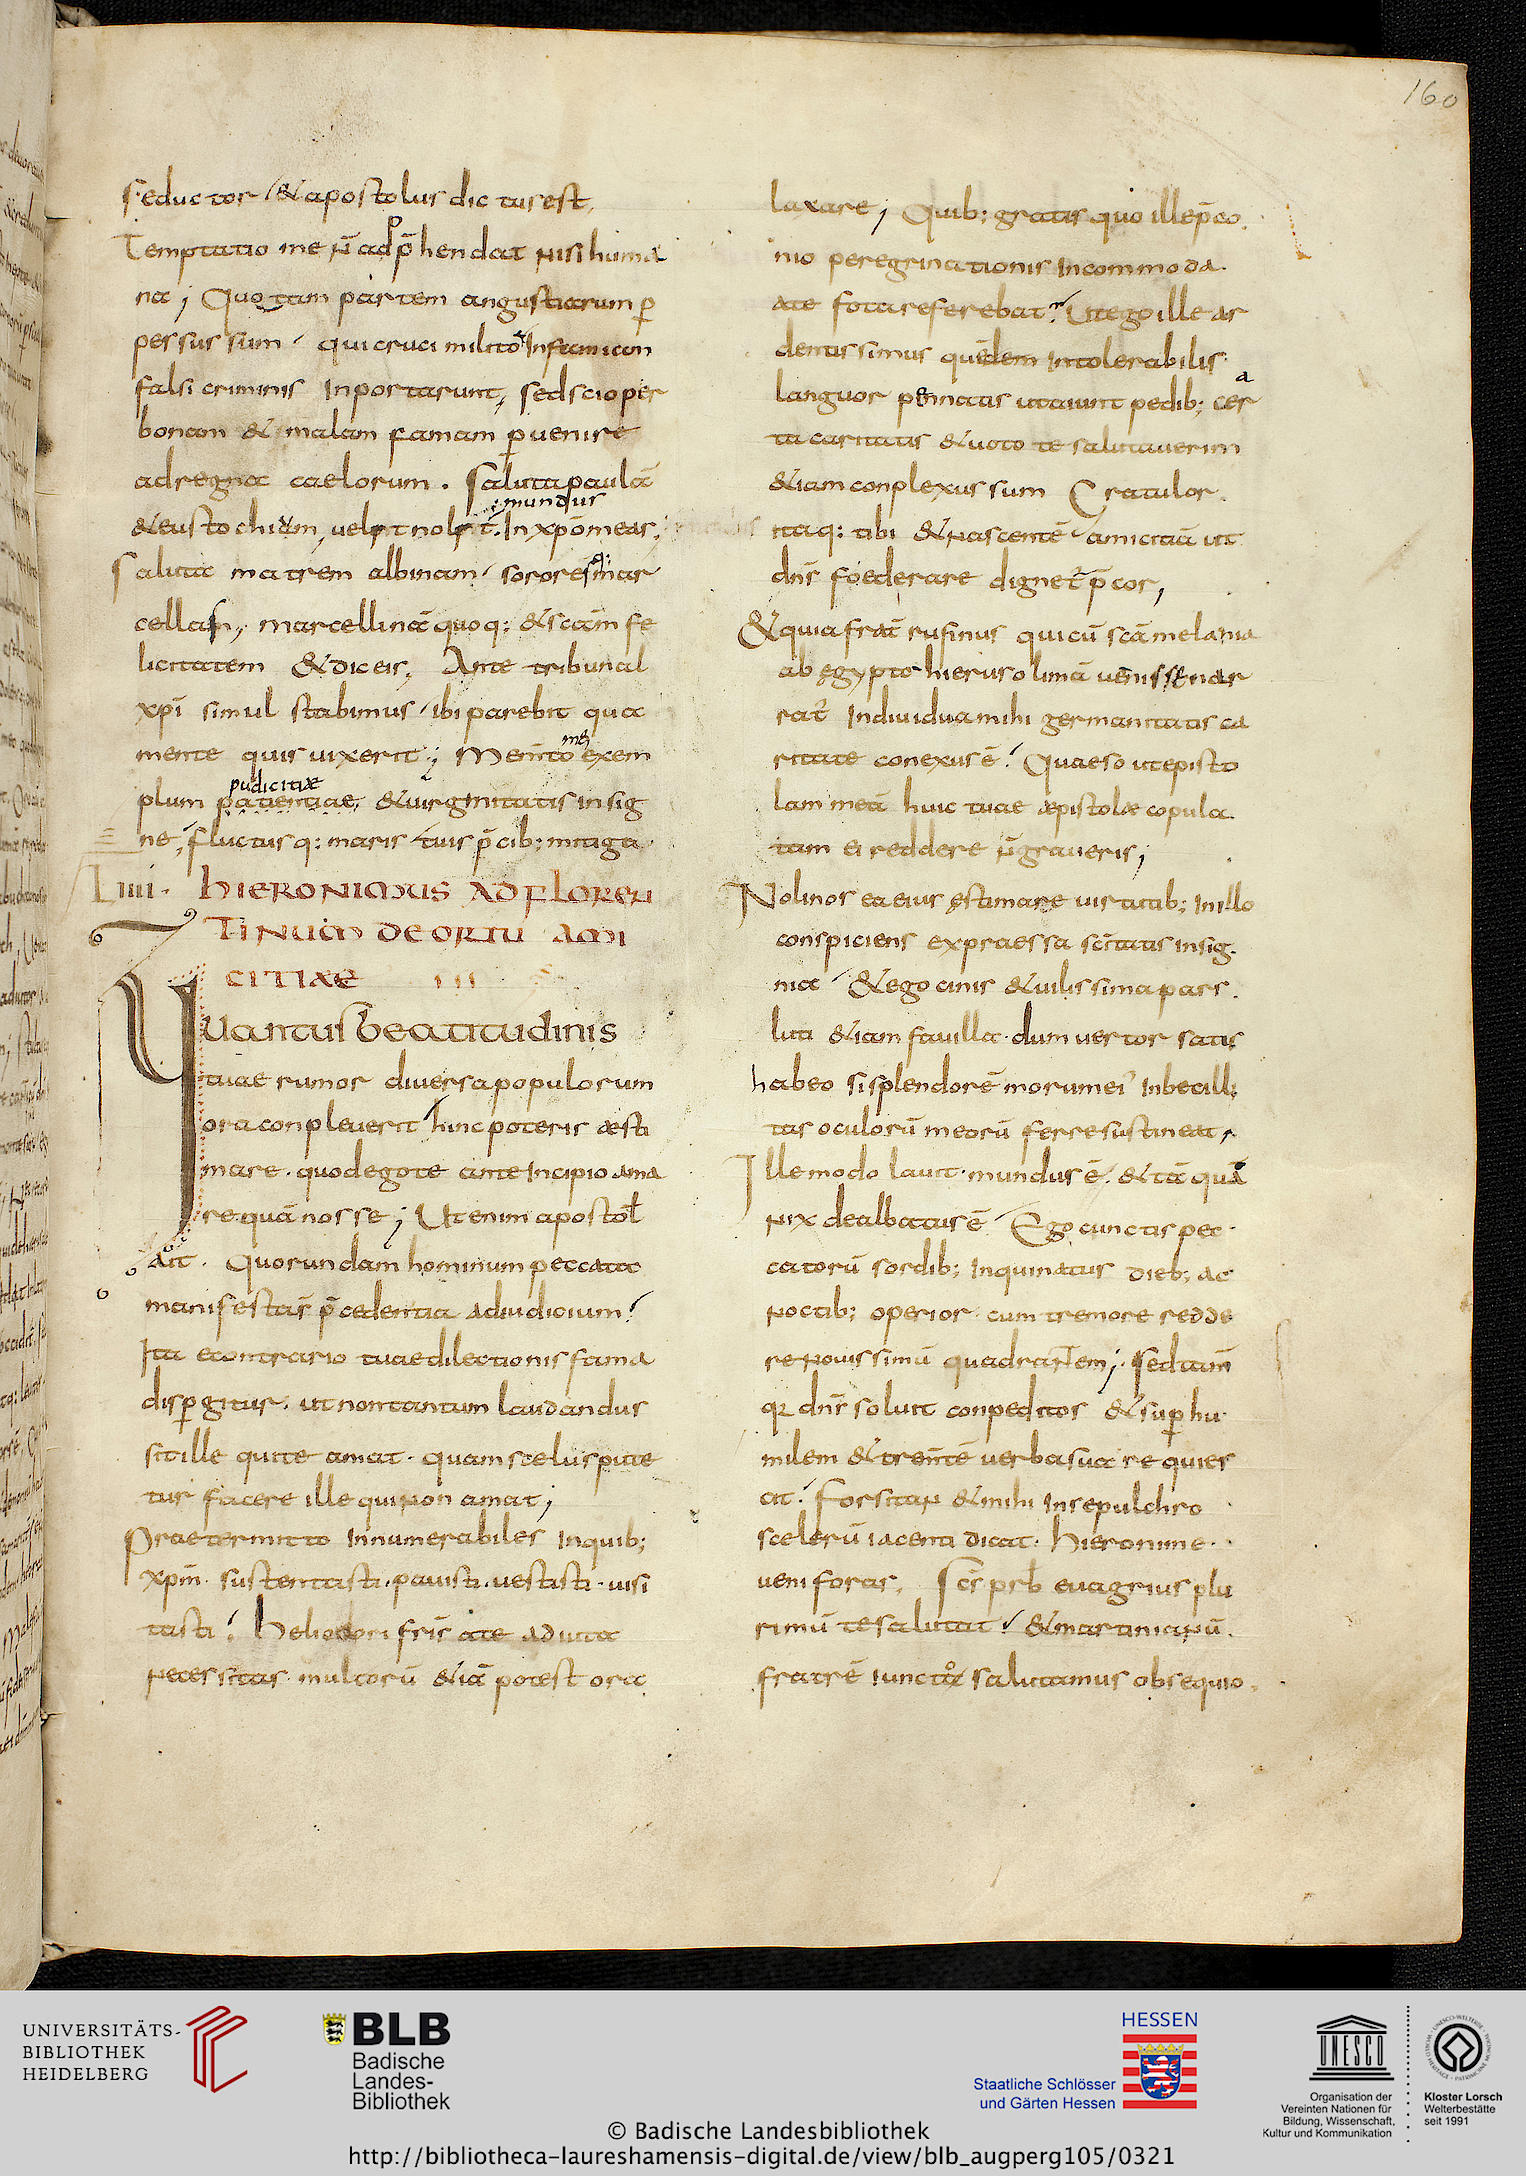 160
seductor &apostolus dictus est,
Temptatio me n̄ adp̄hendat nisi huma
na; Quotam partem angustiarum ꝑ
persus sum qui cruci milito Infamiam
falsi criminis Inportarunt, sed scio per
bonam & malam famam ꝑuenire
ad regna caelorum. Saluta paulā
mundus
&eustochium, uelit nolit. In xp̄o meas;
Saluta matrem albinam sorores mar
cellam, marcellinā quoq: &scām fe
licitatem &dic eis, Ante tribunal
xpī simul stabimus ibi parebit qua
mente quis uixerit; Memto mei exem
pudicitiae
plum patientiae, &uirginitatis insig
ne, fluctusq: maris tuis p̄cib; mitiga
IIII. HIERONIMUS AD FLOREN
TINUM DE ORTU AMI
CITIAE III
QUantus beatitudinis
tuae rumor diuersa populorum
ora conpleuerit hinc poteris aesti
mare. quod ego te ante Incipio ama
re quā nosse; Ut enim apostoł
ait. Quorundam hominum peccata
manifesta s̄ p̄cedentia ad iudicium.
Ita econtrario tuae dilectionis fama
disꝑgitur. ut non tantum laudandus
sit ille qui te amat. quam scelus pute
tur facere ille qui non amat;
Praetermitto Innumerabiles Inquib;
xpm̄. sustentasti. pauisti. uestisti. uisi
tasti. heliodori frīs a te adiuta
necessitas multorū &iā potest ora
laxare; Quib; gratis quo ille p̄co
nio peregrinationis Incommoda.
a te fota referebat. Ut ego ille ar
dentissimus quidem Intolerabilis
languor pennatis ut aiunt pedib; car
ta caritatis &uoto te salutauerim
&iam conplexus sum Gratulor
itaq: tibi &nascentē amicitiā ut
dn̄s foederare dignet̄ p̄cor,
&quia frat̄ rufinus qui cū scā melania
ab ęgypto hierusolimā uenisse nar
rat̄ Indiuidua mihi germanitatis ca
ritate conexus ē. Quaeso ut episto
lam meā huic tuae aepistolae copula
tam ei reddere n̄ graueris;
Noli nos ea eius ęstimare uirtutib; In illo
conspiciens expraessa sc̄itatis insig
nia &ego cinis &uilissima pars.
luti &iam fauilla. dum uertor satis
habeo si splendorē morum ei' Inbecilli
tas oculorū meorū ferre sustineat.
Ille modo lauit. mundus ē. &tā quā
nix dealbatus ē Ego cunctis pec
catorū sordib; Inquinatus dieb; ac
noctib; operior cum tremore redde
re nouissimū quadrantem; Sed tam̄
qꝛ dn̄s soluit conpeditos &suꝑ hu
milem &trem̄tē uerba sua requies
cit. Forsitan &mihi Insepulchro
scelerū iacenti dicat. hieronime
ueni foras, Sc̄s prb̄ euagrius plu
rimū te salutat. &martinianū.
fratrē iuncto salutamus obsequio.
UNIVERSITÄTS-
BIBLIOTHEK
HEIDELBERG
BLB
Badische
Landes-
Bibliothek
HESSEN
Staatliche Schlösser
und Gärten Hessen
UNESCO
Organisation der
Vereinten Nationen für
Bildung, Wissenschaft,
Kultur und Kommunikation
Kloster Lorsch
Welterbestätte
seit 1991
© Badische Landesbibliothek
http://bibliotheca-laureshamensis-digital.de/view/blb_augperg105/0321